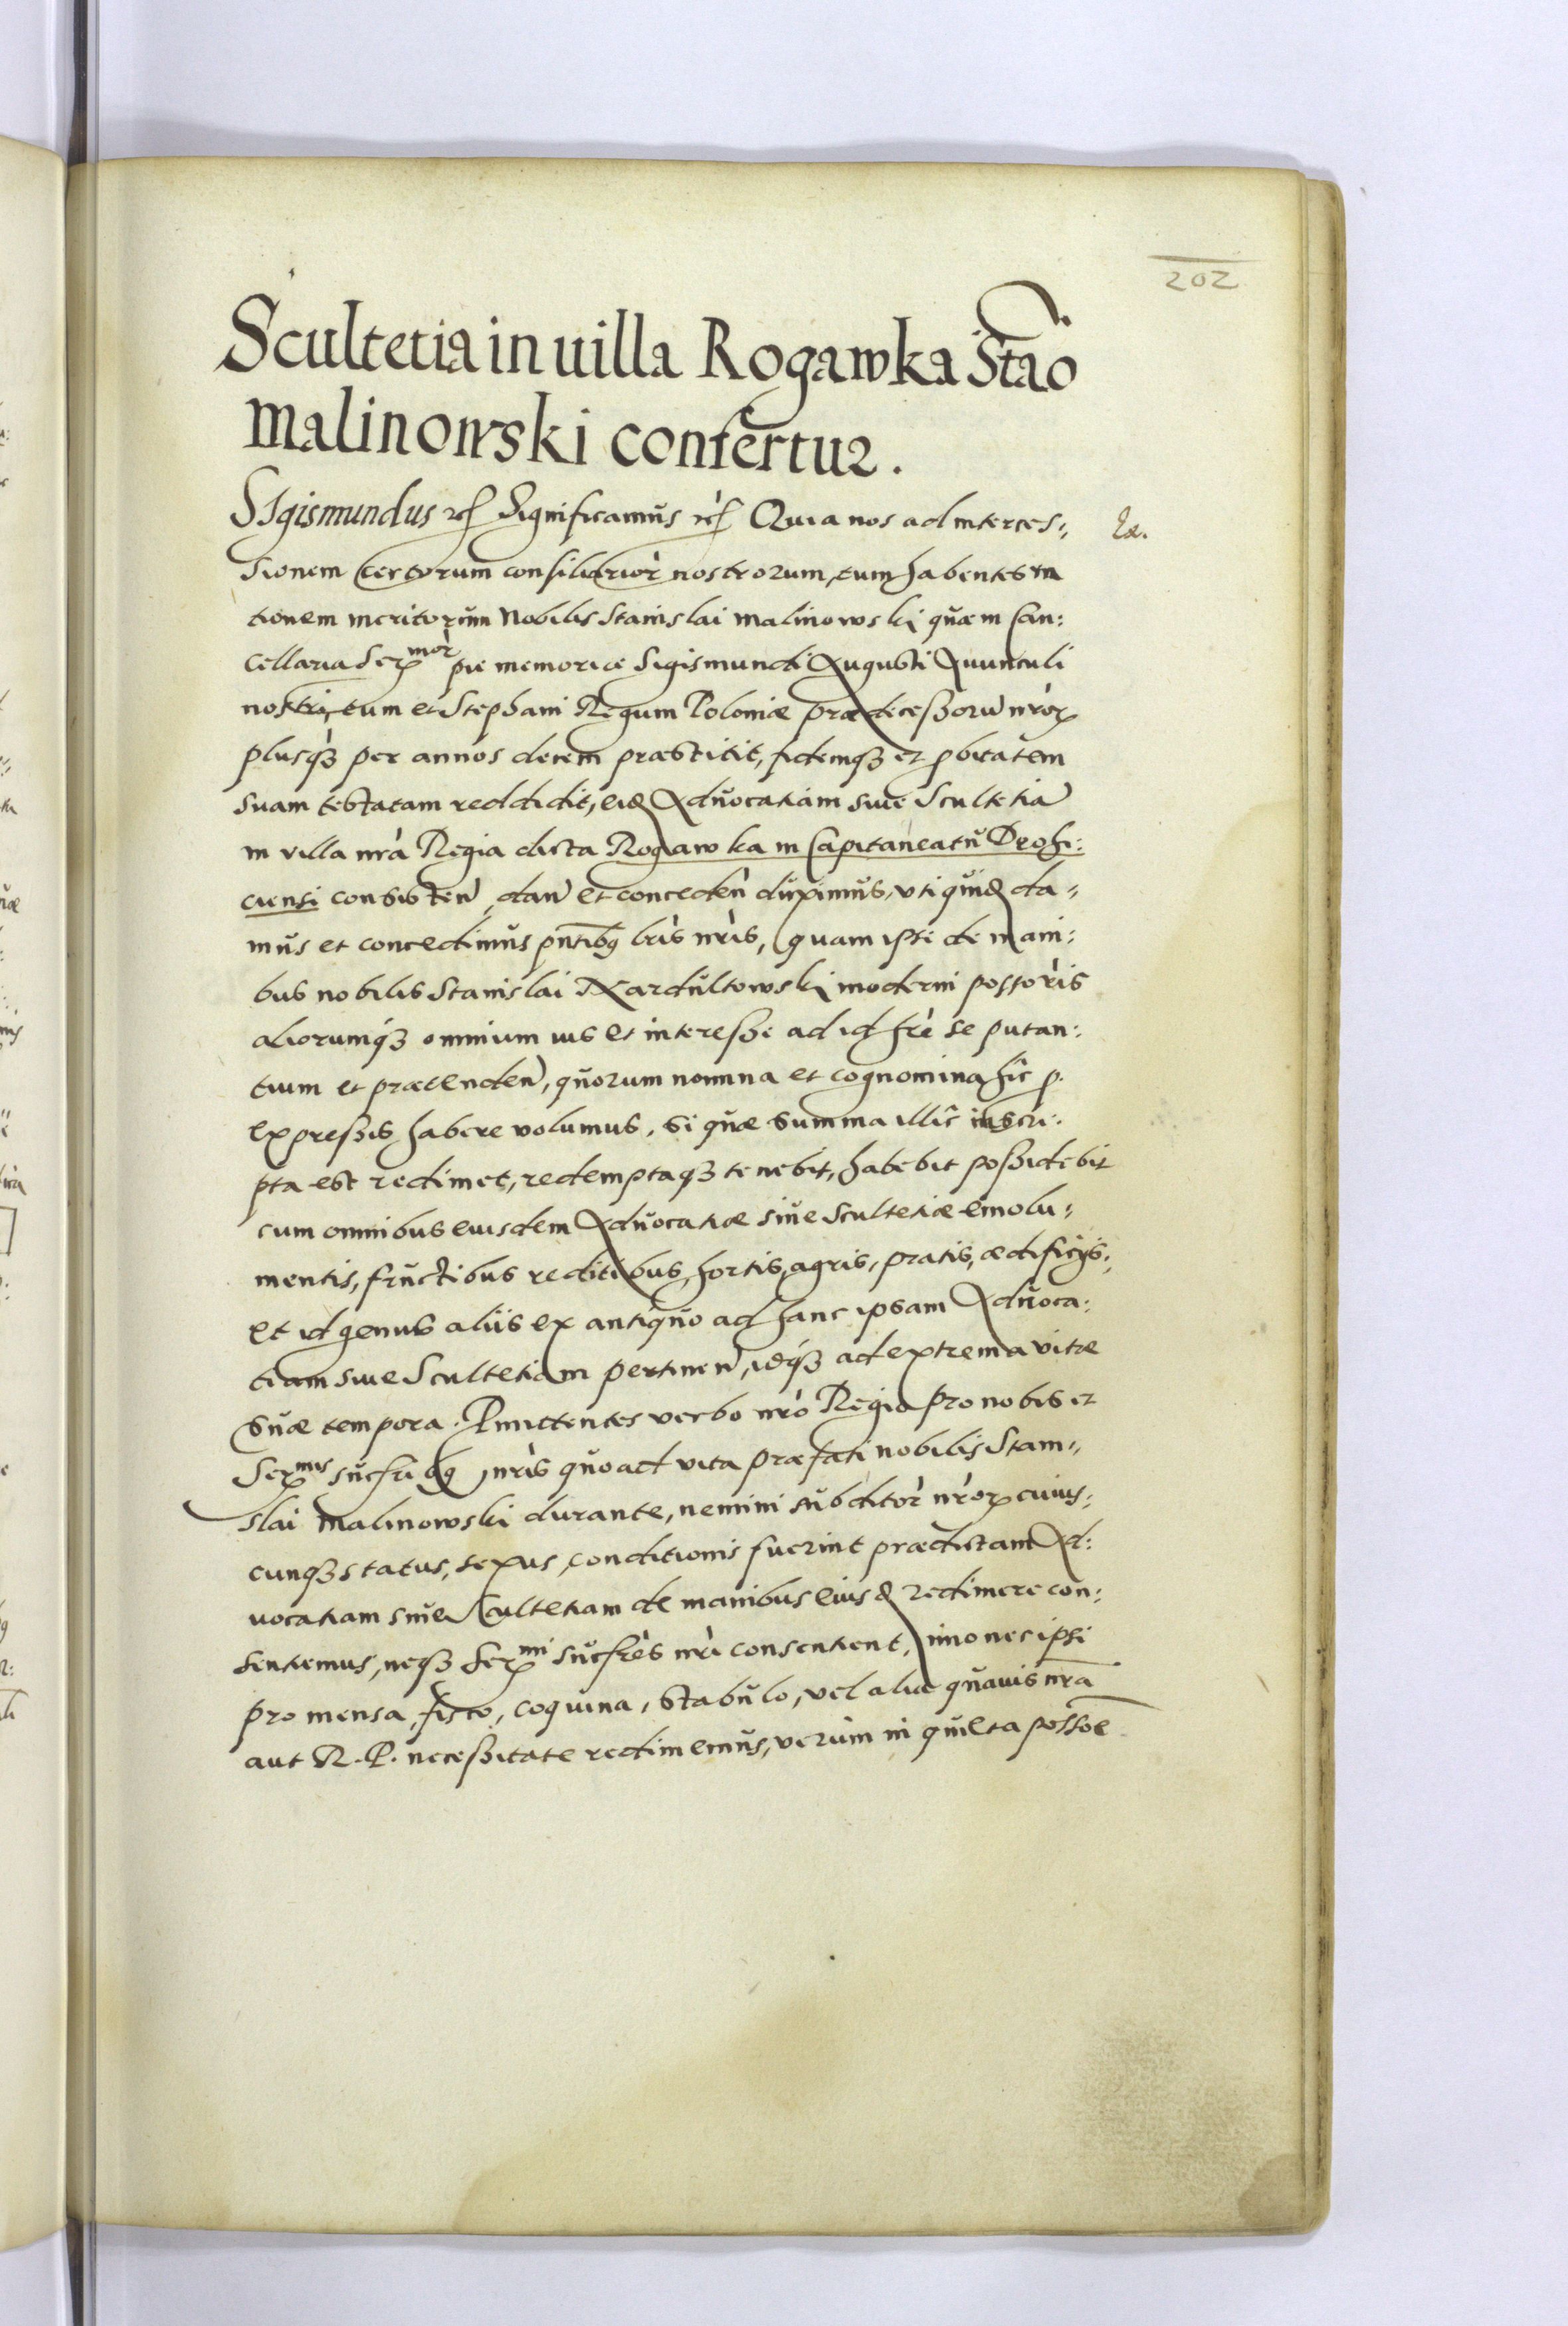 202
Scultetia in uilla Rogawka Stao
Malinowski confertur.
SIgismundus etc Significamus etc Quia nos ad interces:
sionem certorum consiliarior nostrorum, tum habentes ra
tionem meritorum Nobilis Stanislai Malinowski quæ in Can:
cellaria Ser mor piæ memoriæ Sigismundi Augusti Auunculi
nostri, tum et Stephani Regum Poloniæ prædecessoru nror
plusq3 per annos decem præstitit, fidemq3 et pbitatem
suam testatam reddidit, eid Aduocatiam siue Scultetia
in villa nra Regia dicta Rogawka in Capitaneatu Drohi:
ciensi consisten, dan et conceden duximus, uti quid da:
mus et concedimus pntibg lris nris, quam ipse de mani:
bus nobilis Stanislai Nardultowski moderni possoris
aliorumq3 omnium ius et interesse ad id hre se putan:
tium et prætenden, quorum nomina et cognomina hic p.
expressis habere volumus, si quæ summa illic inscri:
pta est redimet, redemptaq3 tenebit, habebit possidebit
cum omnibus eiusdem Aduocatiæ siue Scultetiæ emolu:
mentis, fructibus reditibus, hortis, agris, pratis, ædificijs:
et id genus aliis ex antiquo ad hanc ipsam Aduoca:
tiam siue Scultetiam pertinen, idq3 ad extrema vitæ
suæ tempora. Pmittentes verbo nro Regio pro nobis et
Ser mis sucfribg nris quoad vita præfati nobilis Stani:
slai Malinowski durante, nemini subditor nror cuius:
cunq3 status, sexus, conditionis fuerint prædictam Ad:
uocatiam siue Scultetiam de manibus eiusd redimere con:
sentiemus, neq3 Ser mi sucfres nri consentient, imo nec ipsi
pro mensa, fisco, coquina, stabulo, vel alia quauis nra
aut R. P. necessitate redimemus, verum in quieta possoe